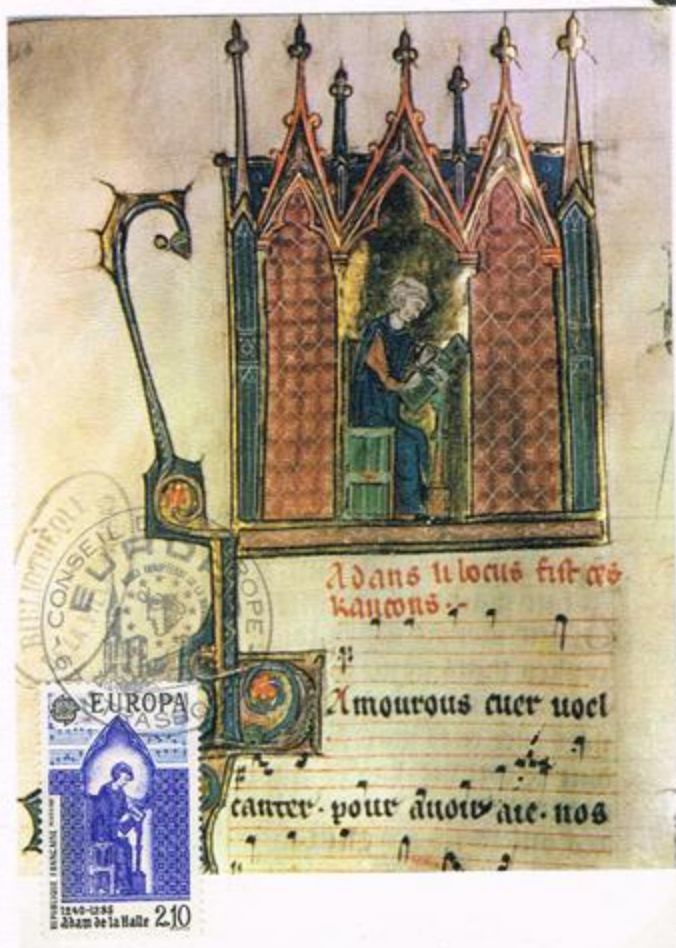 Adans li bocus fist ces
kancons
Amourous cuer voel
canter. pour avoir aie. nos
BIBLIOTHÈQUE
CONSEIL DE L'EUROPE
EUROPA
EUROPA
RÉPUBLIQUE FRANÇAISE
1240-1285
Adam de la Halle 2.10